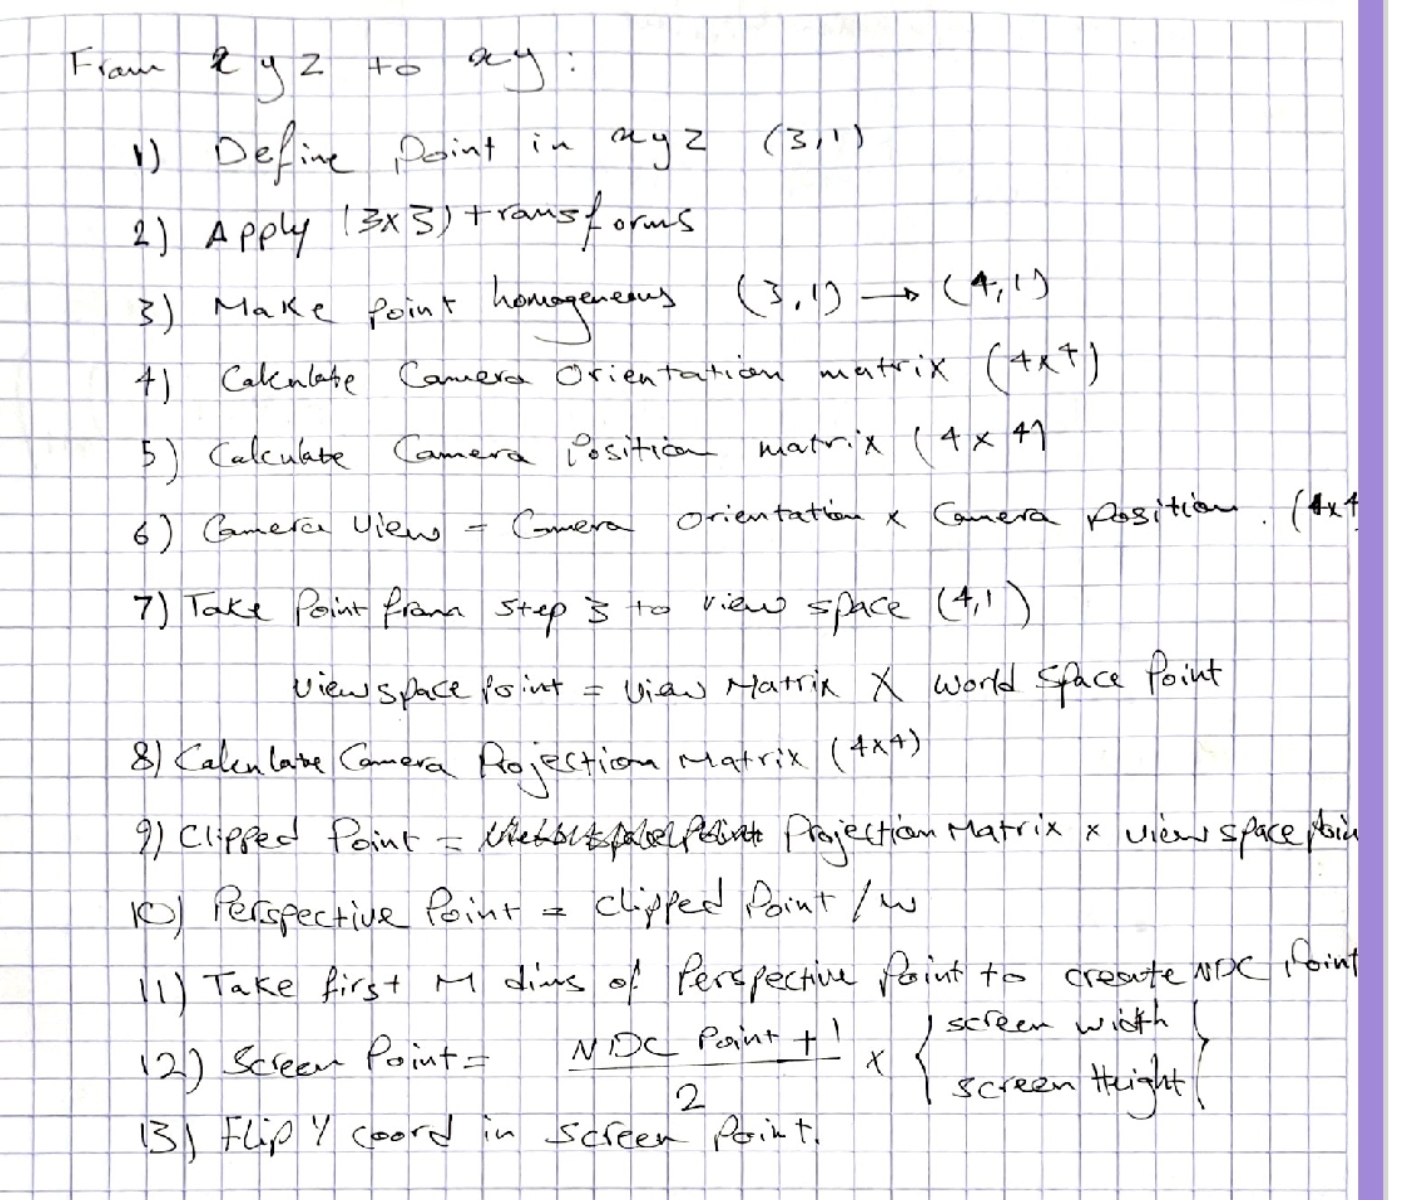 From x y z to xy :
1) Define Point in xyz (3,1)
2) Apply (3x3) transforms
3) Make Point homogeneous (3,1) → (4,1)
4) Calculate Camera Orientation matrix (4x4)
5) Calculate Camera Position matrix (4x4)
6) Camera View = Camera orientation x Camera Position. (4x4
7) Take Point from step 3 to view space (4,1)
view space Point = View Matrix X World Space Point
8) Calculate Camera Projection Matrix (4x4)
9) Clipped Point = Projection Matrix x view space poin
10) Perspective Point = Clipped Point / w
11) Take first M dims of Perspective Point to create NDC Point
12) Screen Point = NDC Point + 1 / 2 x { screen width screen Height }
13) Flip Y coord in screen Point.